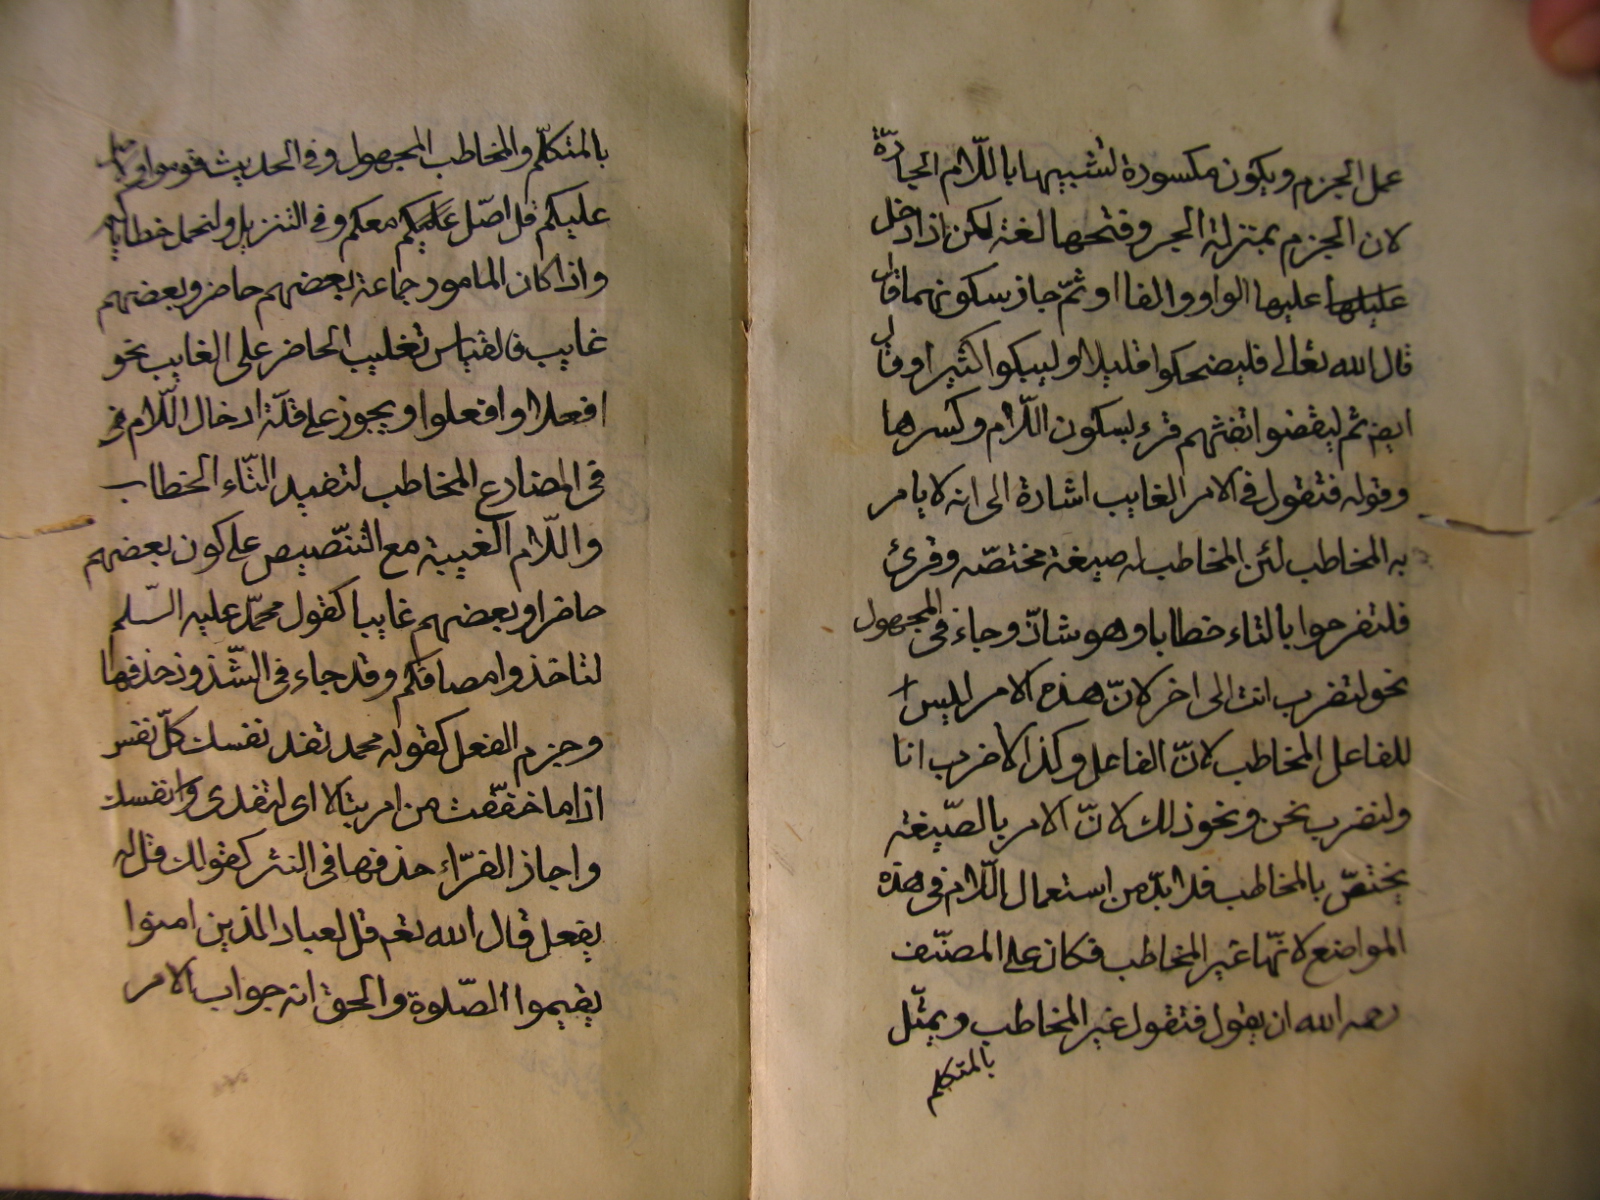 عمل الجزم ويكون مكسورة لتشبيهها باللّام الجارّة
لان الجزم بمنزلة الجر وفتحها لغة لكن اذا دخل
عليها الواو والفا او ثمّ جاز سكونهما قال
قال الله تعالى فليضحكوا قليلا وليبكوا كثيرا وقال
ايضا ثم ليقضوا تفثهم قرء بسكون اللّام وكسرها
وقوله فتقول في الامر الغايب اشارة الى انه لا يامر
به المخاطب لئن المخاطب له صيغة مختصّه وقرئ
فلتفرحوا بالتاء خطابا وهو شاذّ وجاء في المجهول
نحو لتضرب انت الى اخر لانّ هذه الامر ليس
للفاعل المخاطب لانّ الفاعل وكذا لاضرب انا
ولنضرب نحن ونحو ذلك لانّ الامر بالصّيغة
يختصّ بالمخاطب فلا بدّ من استعمال اللّام في هذه
المواضع لانّها غير المخاطب فكان على المصنّف
رحمه الله ان يقول فتقول غير المخاطب ويمثّل
بالمتكلم
بالمتكلّم والمخاطب المجهول وفي الحديث قوموا
عليكم قل اصّل معكم وفي التنزيل ولنحمل خطاياكم
واذا كان المامور جماعة بعضهم حاضر وبعضهم
غايب فالقياس تغليب الحاضر على الغايب نحو
افعلا وافعلوا ويجوز على قلّة ادخال اللّام في
في المضارع المخاطب لتفيد التّاء الخطاب
واللّام الغيبة مع التنّصيص على كون بعضهم
حاضرا وبعضهم غايبا كقول محمّد عليه السّلم
لتاخذوا مصافكم وقد جاء في الشّذوذ حذفها
وجزم الفعل كقوله محمد تفد نفسك كلّ نفس
اذا ما خفّفت من امر تبالا اى لتفدى نفسك
واجاز الفرّاء حذفها في النثر كقولك قل له
يفعل قال الله تعم قل لعباد الذين امنوا
يقيموا الصّلوة والحق انه جواب الامر